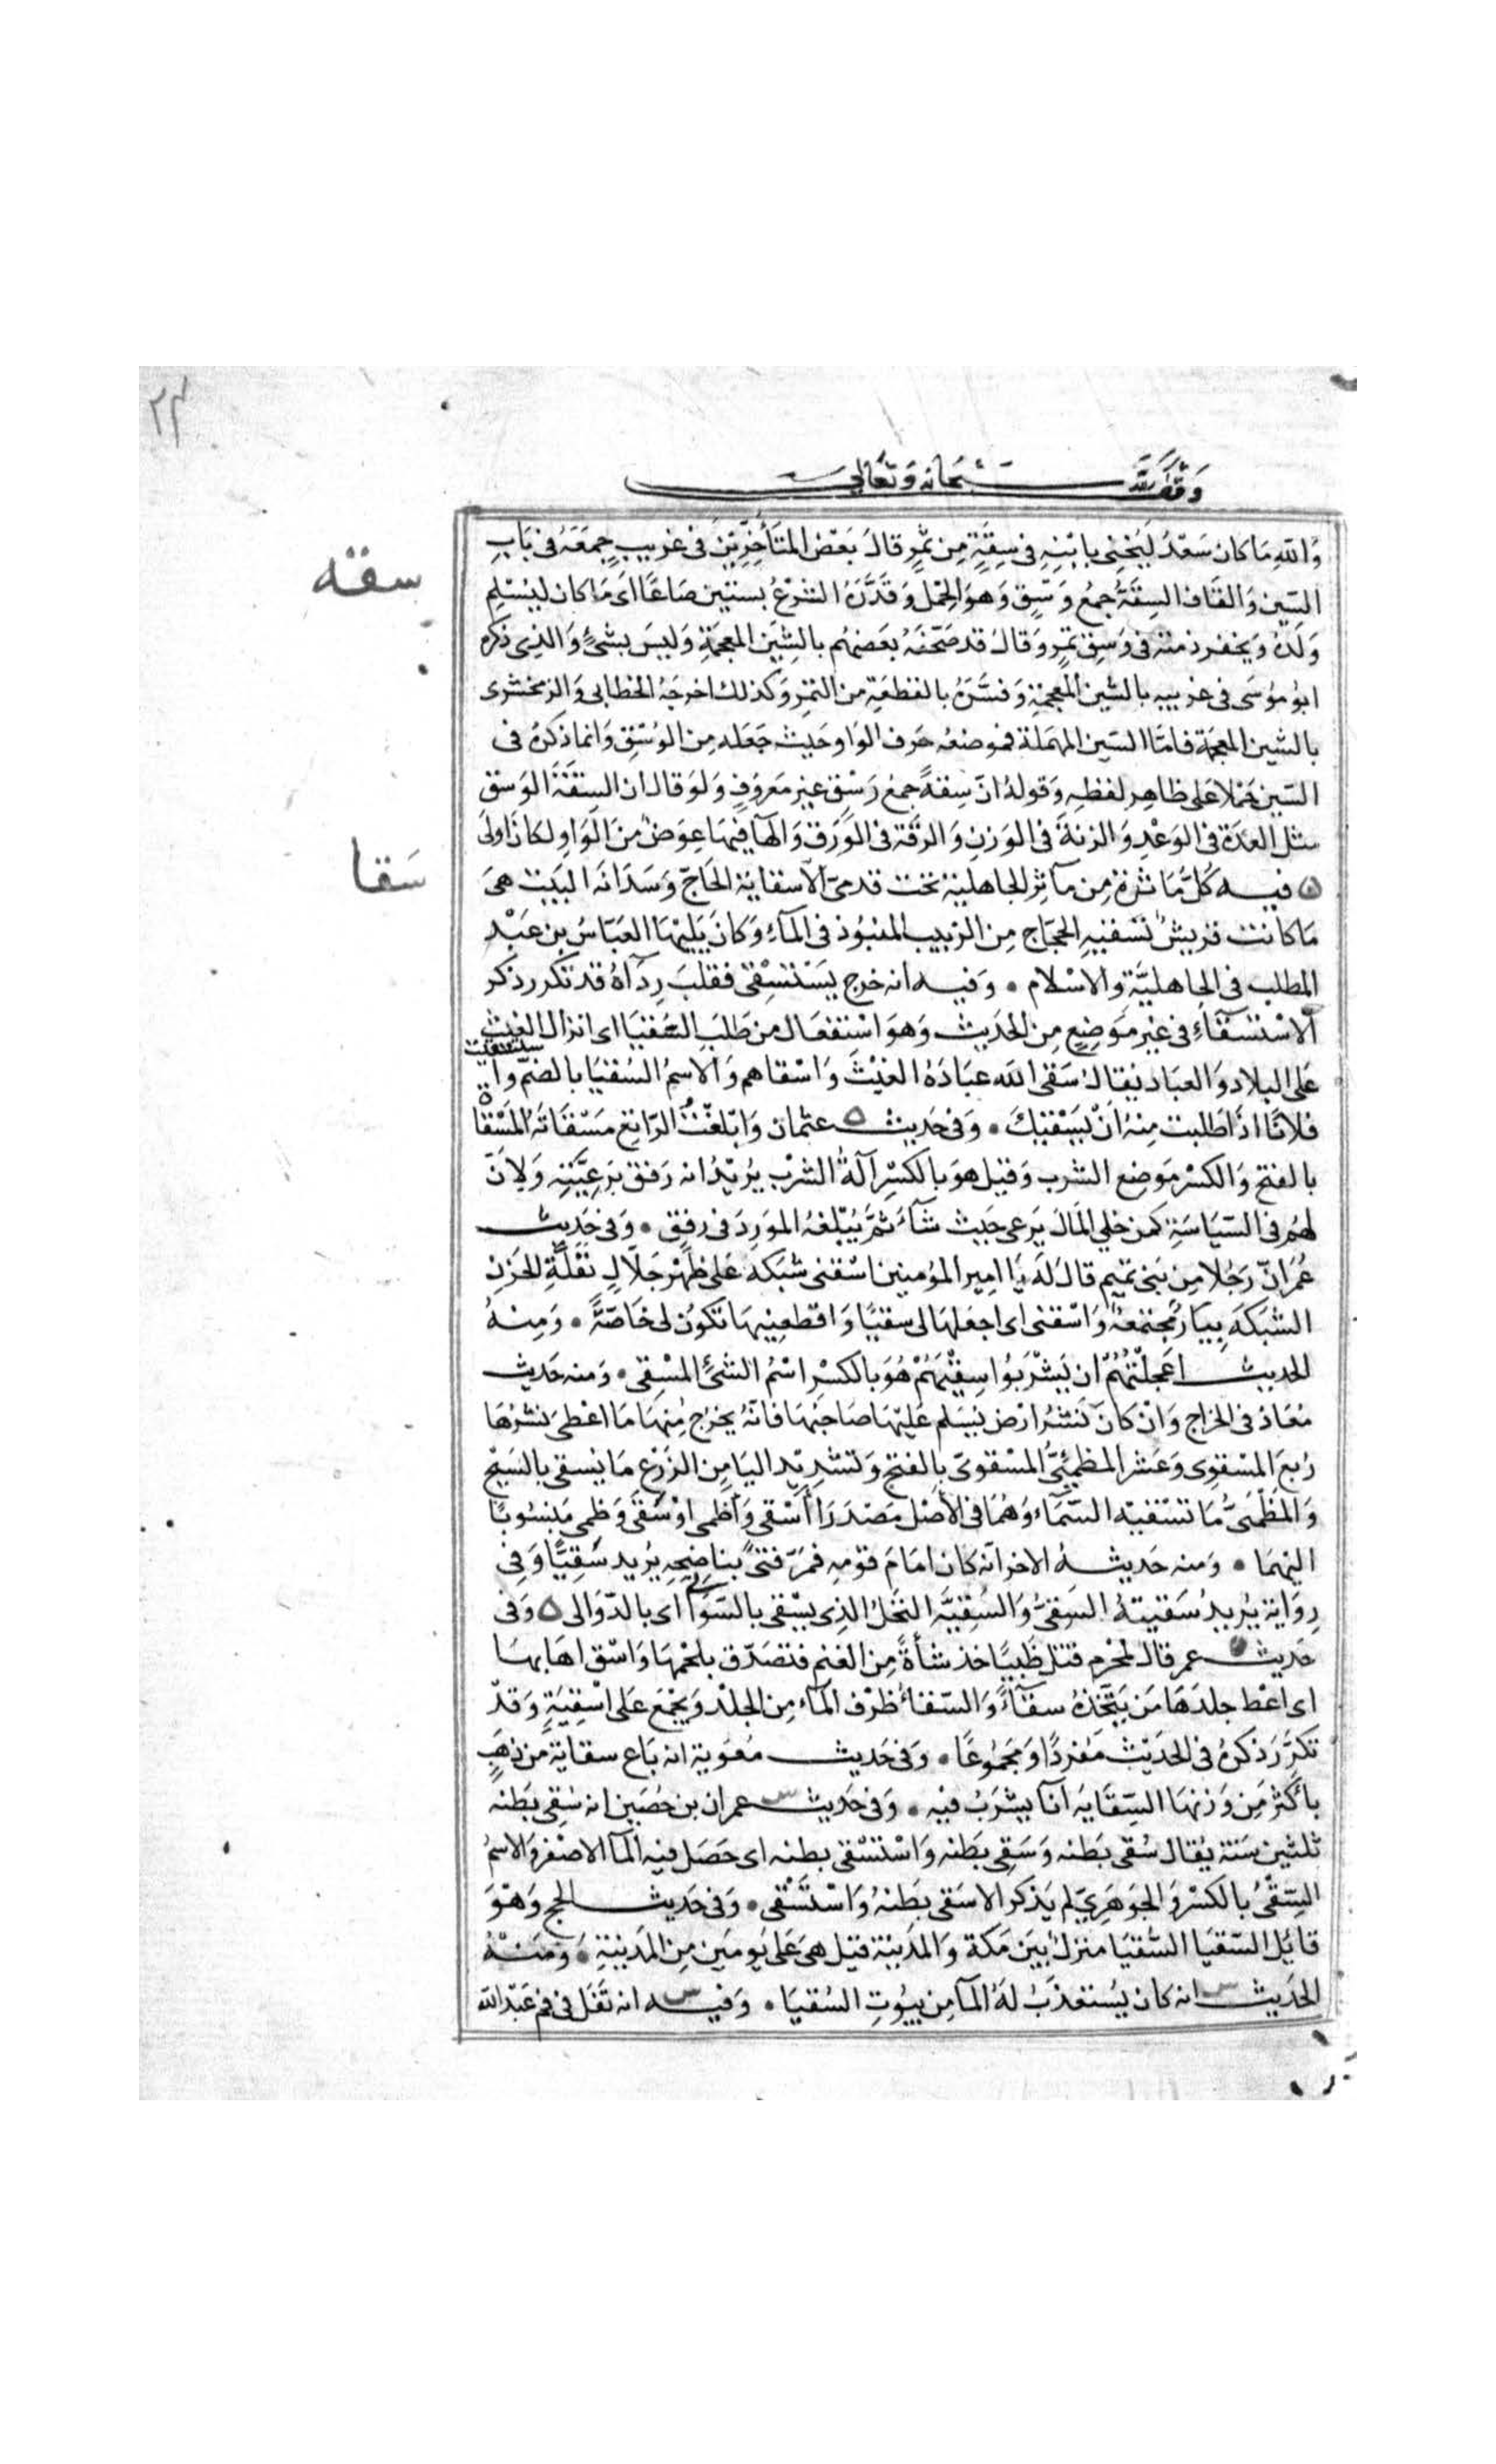 ٢٣
وقف لله سبحانه وتعالى
سقه
سقا
وَاللهِ مَا كان سَعْدٌ لِيُخْنِى بابْنِهِ فى سِقَةٍ مِن تمْرٍ قالَ بَعْض المتَأَخِّرِيْنَ فى غريبٍ جمَعَهُ فى بَابِ
السّين وَالقَاف السِقَةُ جمعُ وَسْقٍ وَهوَ الحِمْل وَقَدَّرَهُ الشرْعُ بستين صَاعًا اى مَا كان ليُسْلِم
وَلَدَهُ وَيخفر ذمته فى وَسِق تمرٍ وَقالَ قد صَحّفَهُ بعَضهُم بالشِيْن المعجمَةِ وَليسَ بشىءٍ وَالذِى ذكره
ابُو مُوسَى فى غريبه بالشين المعجمَةِ وَفسَّرَهُ بالقطعَةِ من التمرِ وَكذلك اخرجَهُ الخطابى وَالزمخشرى
بالشين المعجمَة فامّا السّين المهمَلة فموضعُه حَرف الوَاو حَيث جَعَله مِن الوَسْقِ وَانما ذكرهُ فى
السّين حَمْلا عَلى ظاهِر لفظِه وَقولهُ انّ سِقةً جمعُ وَسْق غير مَعرَوفٍ وَلوَ قال ان السِقَةَ الوَسْق
مثل العِدَة فى الوَعْدِ وَالزنة فى الوَزنِ وَالرقة فى الوَرق وَالهَا فيهَا عِوَضٌ مِنَ الوَاوِ لكانَ اولى
ه فيــه كُلّ مَاثرةٍ مِن مآثِر الجاهلية تحت قدمىّ الاسقايَة الحَاجّ وَسَدَانَة البَيت هىَ
مَا كانت قريشٌ تسْقيهِ الحجّاج مِن الزبيب المنبُوذ فى المآء وَكانَ يَليهَا العَبّاسُ بن عَبْدِ
المطلب فى الجاهليَّةِ وَالاسْلام • وَفيــه انه خرج يَسْتَسْقى فقلبَ رِدَآهُ قد تكرر ذكر
الاسْتسْقآءِ فى غيْر مَوَضِعٍ مِن الحَديث وَهوَ اسْتفعَال من طَلَبِ السّقيَا اى انزال الغيْثِ
عَلى البلاد وَالعباد يقال سَقى الله عبَادَهُ الغيْثَ وَاسْقاهم وَالاسمُ السُقيَا بالضمّ وا
ستسقيت
فلانًا اذا طَلبت مِنهُ اَنْ يَسْقيَكَ • وَفى حَديث ه عثمان وَابْلَغْتُ الرّاتِعَ مَسْقَاتَهُ المَسْقاة
بالفتح وَالكسْر مَوضِع الشرب وَقيل هوَ بالكَسْرِ آلةُ الشرْب يُريْدُ انه رَفق برَعِيَّتِهِ وَلاَنَ
لهُم فى السّيَاسَةِ كمن خلى المَالَ يَرعى حَيث شآءَ ثمَّ يُبْلغهُ المَورِدَ فى رفقٍ • وَفى حَديث
عُمَر انّ رَجُلا مِن بَنى تميم قالَ لَهُ يَا امير المؤمنين اسْقنى شبَكة عَلى ظهْر جَلّالٍ بقُلَّةِ الحَزنِ
الشبَكَة بِيَارٌ مجْتمعَةٌ وَاسْقنى اى اجعَلهَا لى سقيًا وَاقطعنِيهَا تكوُن لى خَاصّةً • وَمِنهُ
الحديث اعجلْتُهُمْ ان يَشْرَبُوا سِقْيَهُمْ هُوَ بالكسْر اسْمُ الشىْءِ المسْقى • وَمنه حَديث
مُعَاذ فى الخراج وَانْ كانَ نَشْرُ ارْض يُسْلم عَليْهَا صَاحبُهَا فانّهُ يخْرِجُ مِنهَا مَا اعْطى نَشْرُهَا
رُبعَ المَسْقوِى وَعشر المظمئىّ المَسْقوىّ بالفتح وَتشْديْد اليَا مِن الزَرْعِ مَا يُسقى بالسَيْح
وَالمَظمئىُّ مَا تسْقيْه السّمَاء وَهُمَا فى الاَصْل مَصْدَرَا اَسْقى وَاَظمى اوْ سَقى وَظمى مَنسُوبًا
اليْهمَا • وَمنه حَديثــهُ الاخر انّه كان امَامَ قوْمِهِ فمرَّ فتىً بناضِحِهِ يُريد سَقِيًّا وَفى
رِوَايَة يُريدُ سَقيتهُ السَقىُّ وَالسَقِيَّة النَخلُ الذِى يسْقى بالسَّوَانى اى بالدّوَالى ه وَفى
حَديث عمر قالَ لمحْرِمٍ قتل ظَبْيًا خذ شاةً مِن الغنم فتصَدّق بلَحْمهَا وَاسْق اهَابهَا
اى اعْط جلدَهَا مَن يَتَّخذُهُ سقآءً وَالسّقاءُ ظرْف المآء مِن الجلْد وَيجْمَع عَلى اسْقِيَةٍ وَقدْ
تكرّرَ ذكرُهُ فى الحَدَيث مُفردًا وَمَجْمُوعًا • وَفى حَديث مُعَوية انه بَاع سقايَة من ذهبٍ
باَكثر مِن وَزنهَا السّقايَة انآ يشرَبُ فيه • وَفى حَديث عمران بن حُصَين انه سُقِى بَطنه
ثلثين سَنَة يُقال سُقى بَطنه وَسَقِى بَطنه وَاسْتسْقى بطنه اى حَصَل فيه المآ الاصْفر وَالاسمُ
السِّقىُ بالكَسْر وَالجوَهَرِىّ لم يَذكر الاسَقى بَطنهُ وَاسْتَسْقى • وَفى حَديث الحج وَهْوَ
قايل السّقيَا السُّقيَا منزلٌ بَيَن مَكة وَالمدَينة قيل هىَ عَلى يَومَين مِن المدَينةِ • وَمِنــهُ
الحَديث انه كان يُستعْذَبُ لهُ المآ مِن بيُوتِ السُقيَا • وَفيــه انه تفَل فى فم عَبْد الله